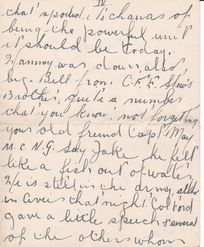 IV
that spoiled its chances of
being the powerful unit
it should be today.
Mammy was down, also
big Bull from C.F.F. Stew's
Brother, quite a number
that you know, not forgetting
your old friend Capt. May
N.G. Say Jake, he felt
like a fish out of water.
He is still in the drying
in Aver that night. Colt
gave a little speech & several
of the other whom